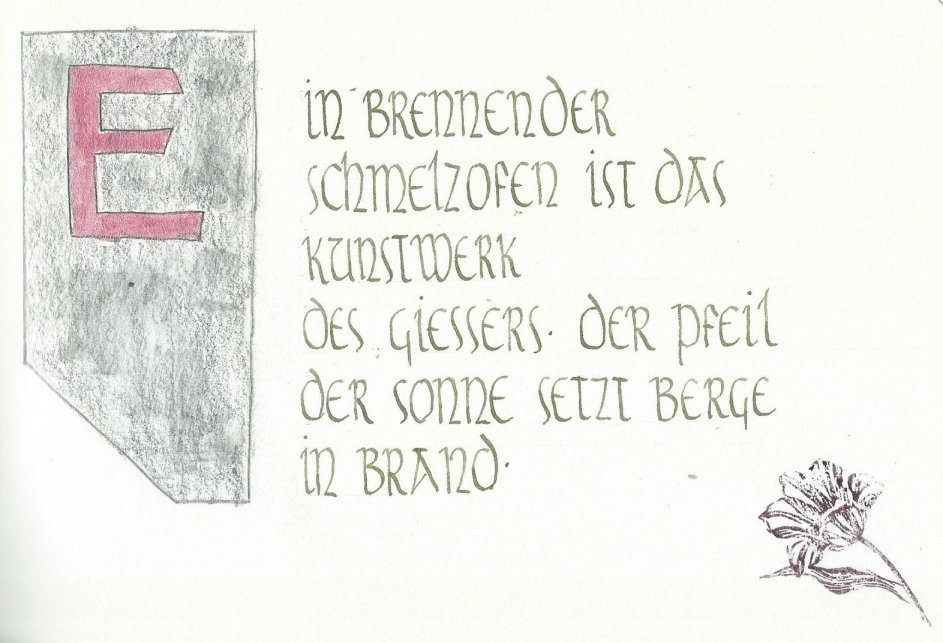 Ein brennender
Schmelzofen ist das
Kunstwerk
des Giessers. Der Pfeil
der Sonne setzt Berge
in Brand.